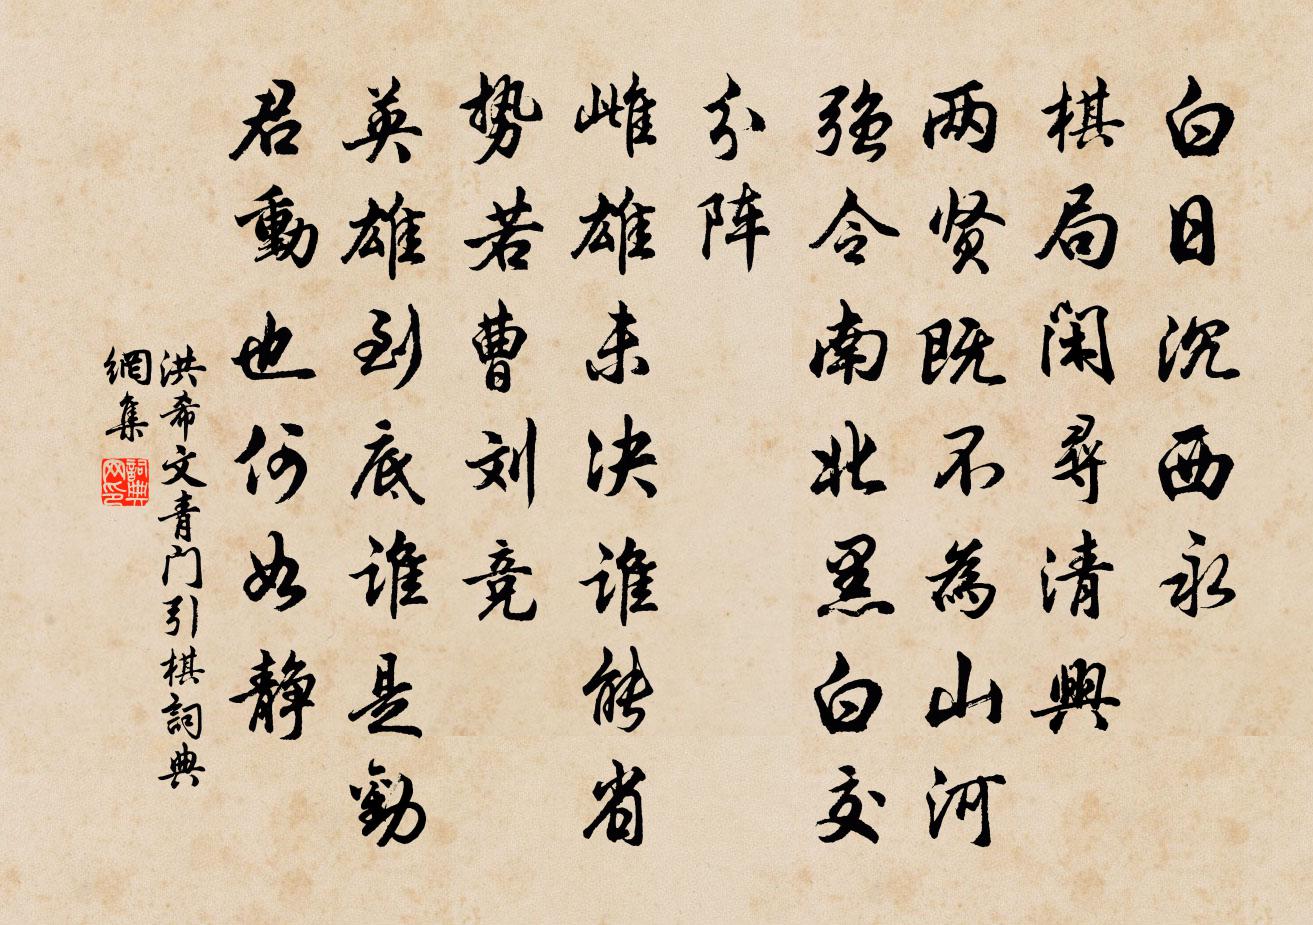 白日沉西永
棋局闲尋清興
两贤既不為山河
强令南北黑白交
分阵
雌雄未决谁能省
势若曹刘竞
英雄到底谁是勁
君動也何如静
洪希文青门引棋詞典
網集
詞典
网印